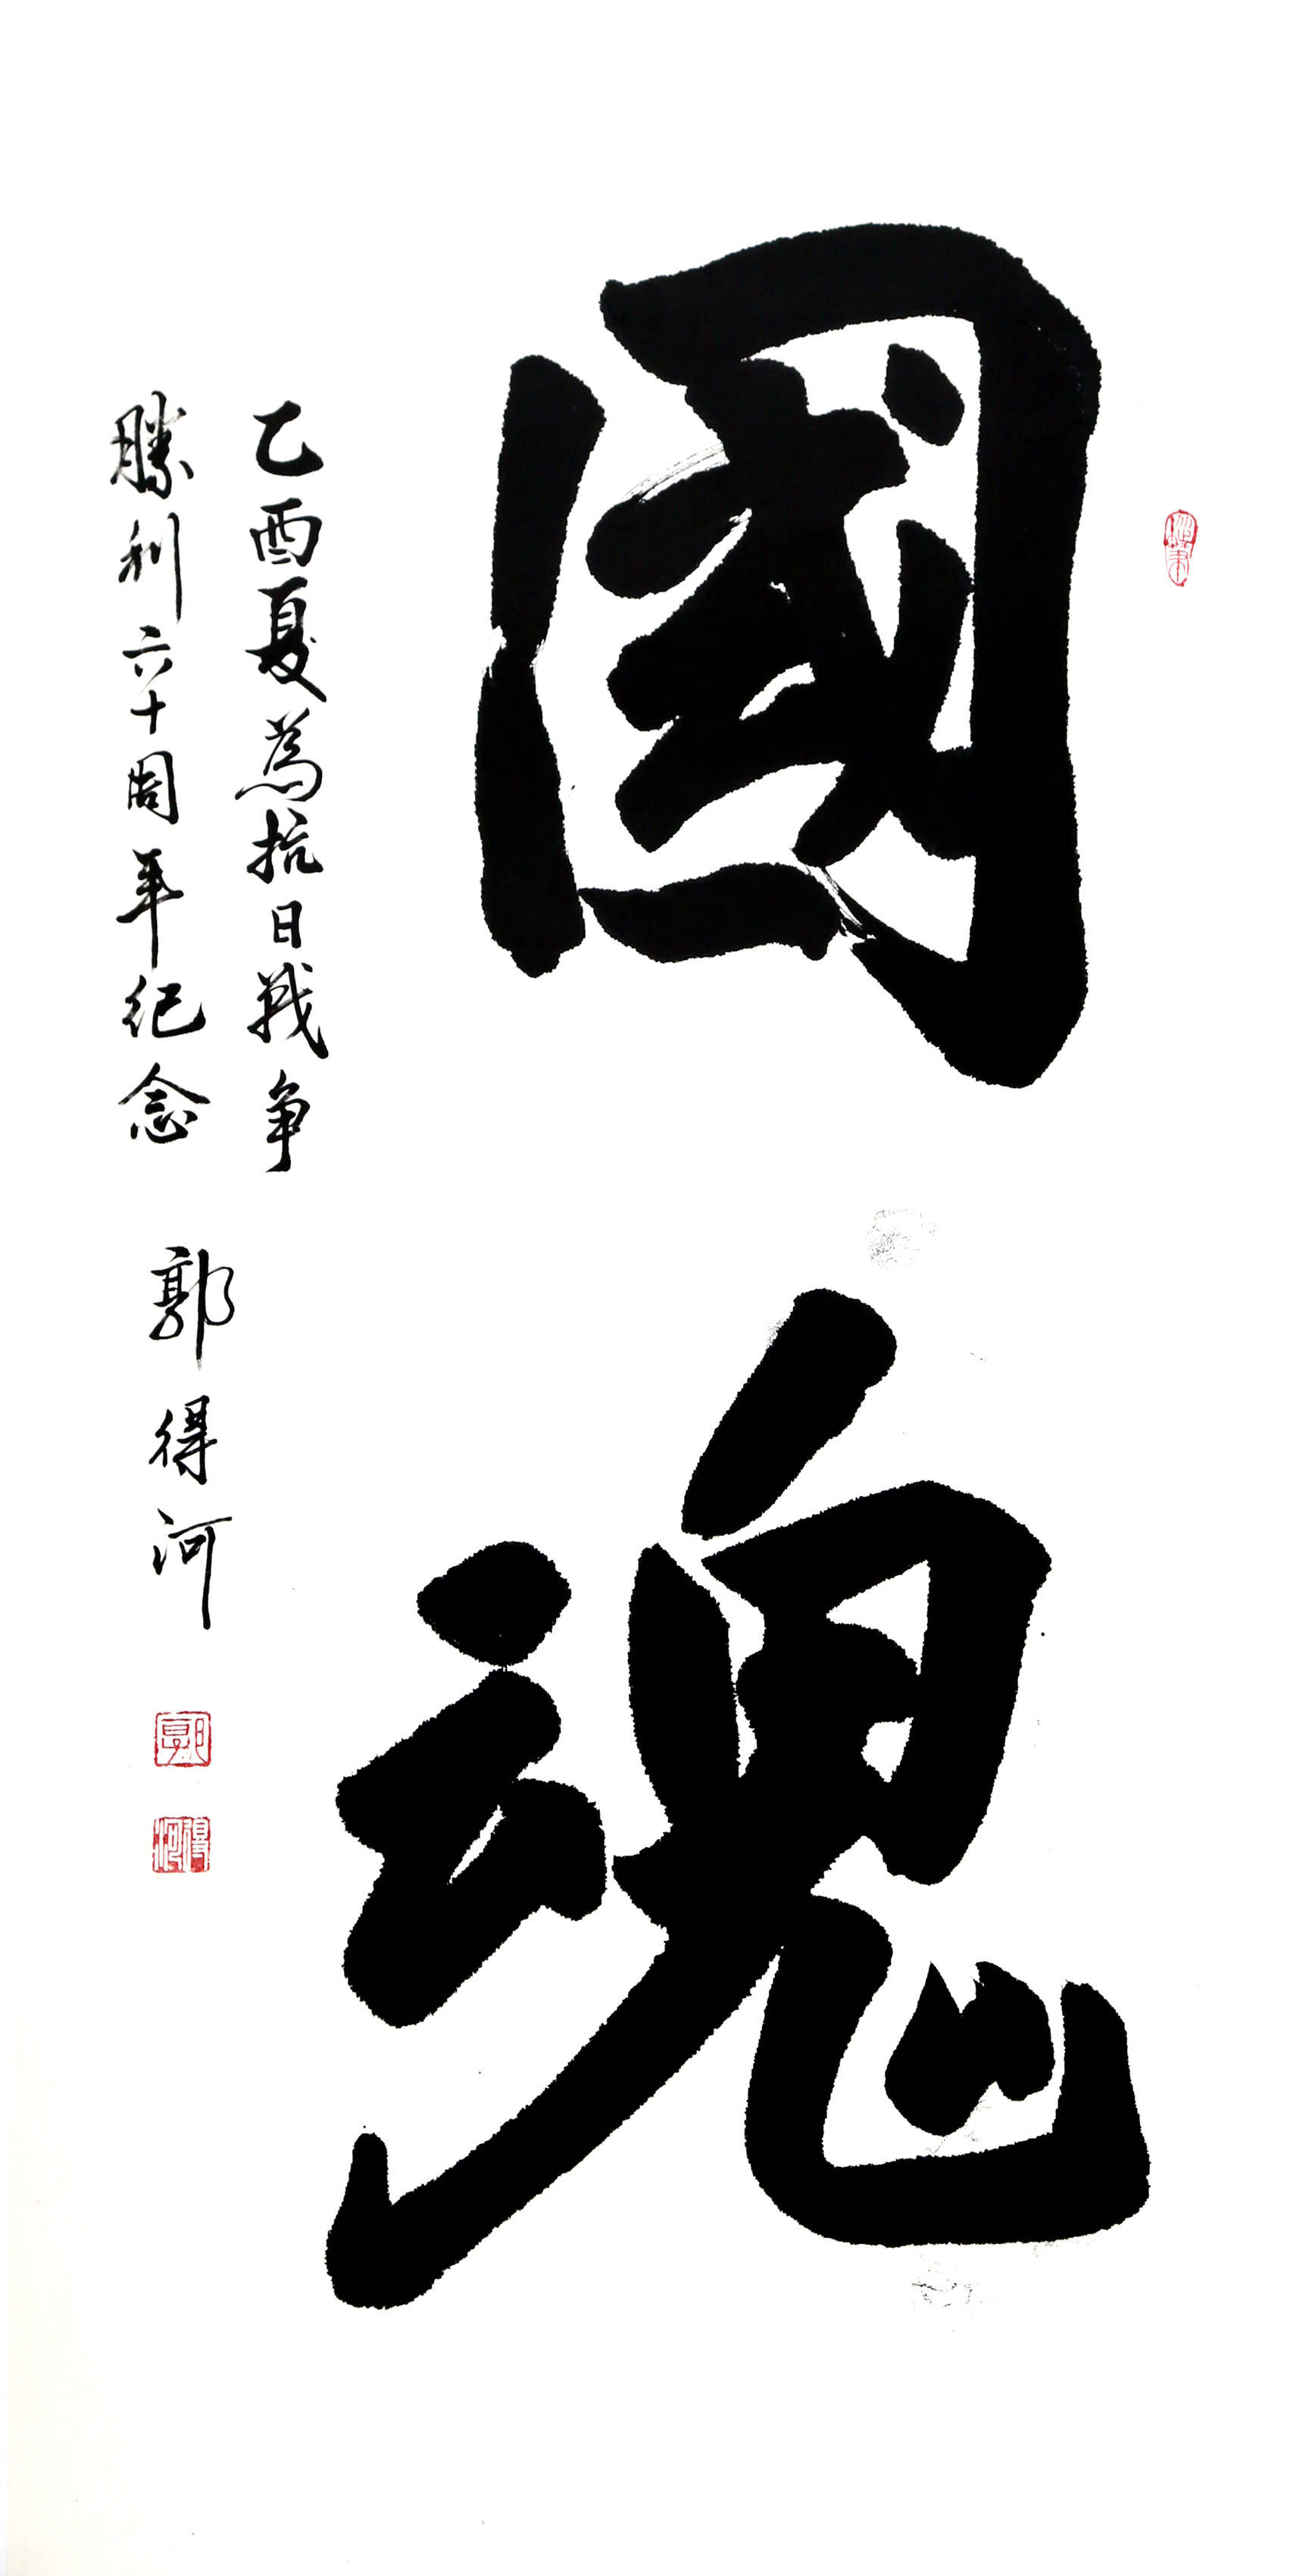 國魂
乙酉夏為抗日戰争
勝利六十周年紀念
郭得河
郭
得河